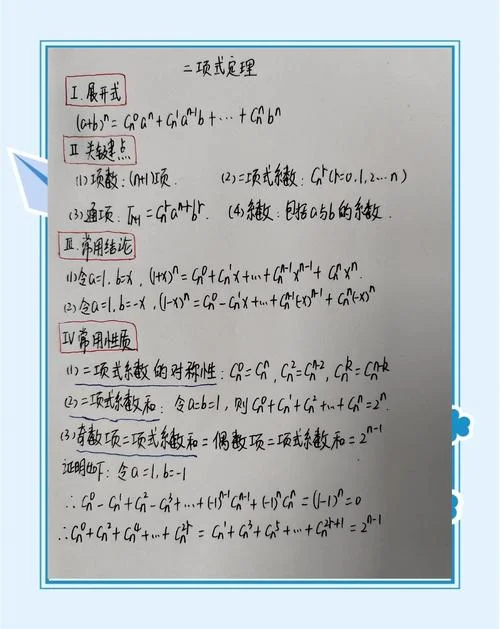 二项式定理
Ⅰ.展开式
(a+b)ⁿ = Cₙ⁰aⁿ + Cₙ¹aⁿ⁻¹b + … + Cₙⁿbⁿ
Ⅱ 关键点
(1) 项数: (n+1)项. (2)二项式系数: Cₙʳ(r=0,1,2…n)
(3) 通项: Tᵣ₊₁ = Cₙʳaⁿ⁻ʳbʳ. (4) 系数: 包括a与b的系数.
Ⅲ.常用结论
(1) 令a=1, b=x, (1+x)ⁿ = Cₙ⁰ + Cₙ¹x + … + Cₙⁿ⁻¹xⁿ⁻¹ + Cₙⁿxⁿ.
(2) 令a=1, b=-x, (1-x)ⁿ = Cₙ⁰ - Cₙ¹x + … + Cₙⁿ⁻¹(-x)ⁿ⁻¹ + Cₙⁿ(-x)ⁿ
Ⅳ 常用性质
(1) 二项式系数的对称性: Cₙ⁰ = Cₙⁿ, Cₙ² = Cₙⁿ⁻², Cₙᵏ = Cₙⁿ⁻ᵏ
(2) 二项式系数和: 令a=b=1, 则Cₙ⁰ + Cₙ¹ + Cₙ² + … + Cₙⁿ = 2ⁿ.
(3) 奇数项二项式系数和 = 偶数项二项式系数和 = 2ⁿ⁻¹
证明如下: 令a=1, b=-1
∴ Cₙ⁰ - Cₙ¹ + Cₙ² - Cₙ³ + … + (-1)ⁿ⁻¹Cₙⁿ⁻¹ + (-1)ⁿCₙⁿ = (1-1)ⁿ = 0
∴ Cₙ⁰ + Cₙ² + Cₙ⁴ + … + Cₙ²ʳ = Cₙ¹ + Cₙ³ + Cₙ⁵ + … + Cₙ²ʳ⁺¹ = 2ⁿ⁻¹